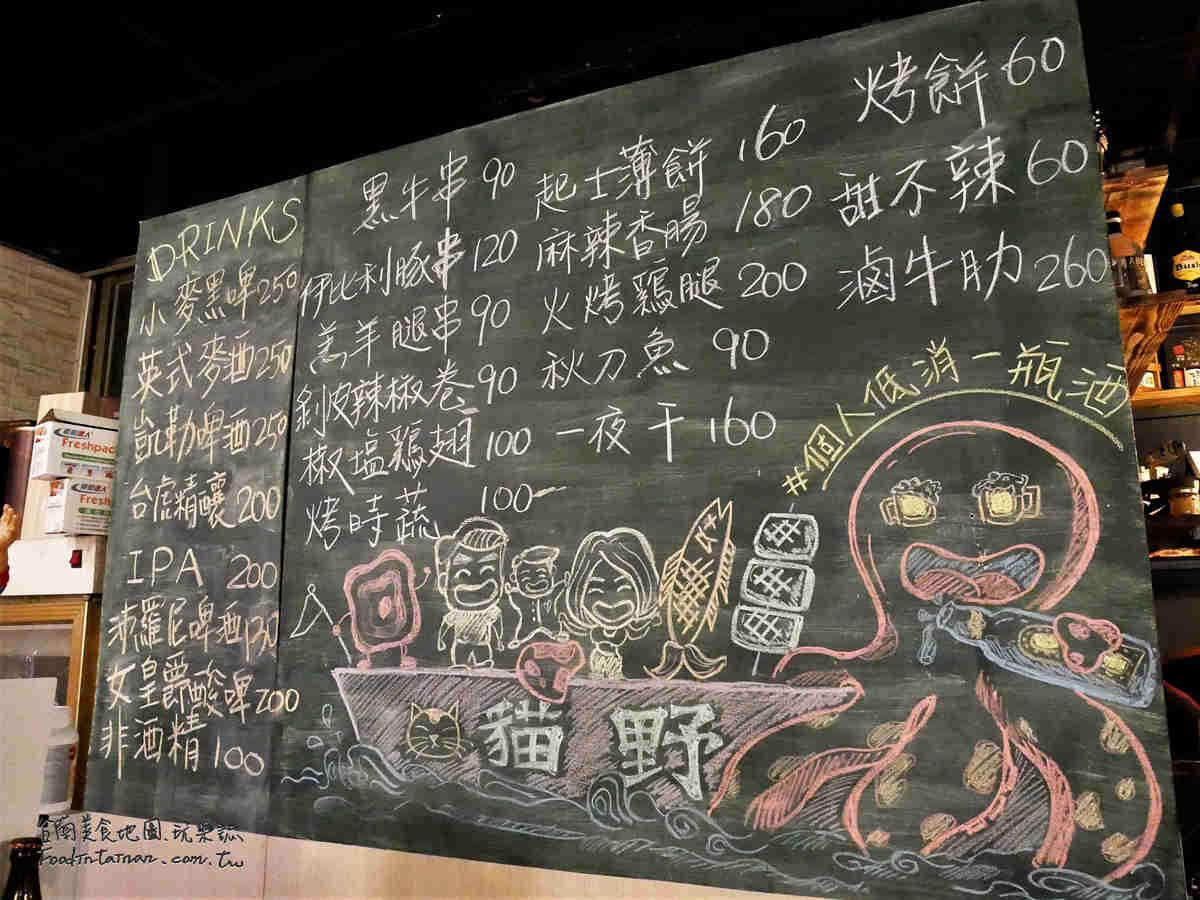 DRINKS
小麥黑啤 250
英式麥酒 250
凱勒啤酒 250
台虎精釀 200
IPA 200
沛羅尼啤酒 130
女皇爵酸啤 200
非酒精 100
黑牛串 90
伊比利豚串 120
羔羊腿串 90
剝皮辣椒卷 90
椒塩鶏翅 100
烤時蔬 100
起士薄餅 160
麻辣香腸 180
火烤鶏腿 200
秋刀魚 90
一夜干 160
烤餅 60
甜不辣 60
滷牛肋 260
#個人低消一瓶酒
貓野
Freshpack
Fresh
Bush
台南美食地圖.玩樂誌
foodintainan.com.tw